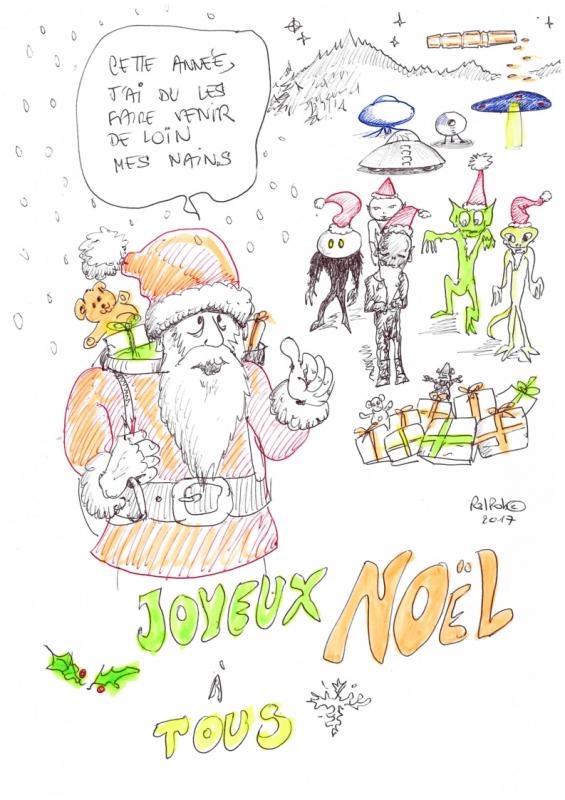 CETTE ANNÉE,
J'AI DU LES
FAIRE VENIR
DE LOIN
MES NAINS
2017
JOYEUX NOËL
À
TOUS